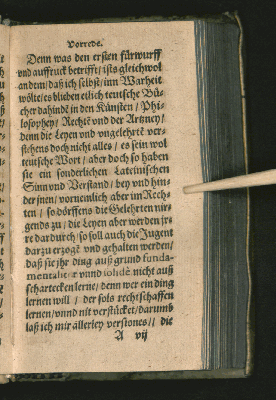 Vorrede.
Denn was den ersten fürwurff
vnd auffruck betrifft / ists gleichwol
an dem / daß ich selbst / inn Warheit
wölte / es blieben etlich teutsche Bü-
cher dahindē in den Künsten / Phi-
losophey / Rechtē vnd der Artzney /
denn die Leyen vnd vngelehrtē ver-
stehens doch nicht alles / es sein wol
teutsche Wort / aber doch so haben
sie ein sonderlichen Lateinischen
Sinn vnd Verstand / bey vnd hin-
der jnen / vornemlich aber im Rech-
ten / so dörffens die Gelehrten nir-
gends zu / die Leyen aber werden jr-
re dardurch / so soll auch die Jugent
darzu erzogē vnd gehalten werden /
daß sie jhr ding auß grund funda-
mentaliter vnnd nicht auß
schartecken lerne / denn wer ein ding
lernen will / der sols rechtschaffen
lernen / vnnd nit verstücket / darumb
laß ich mir allerley versiones / / die
A vij